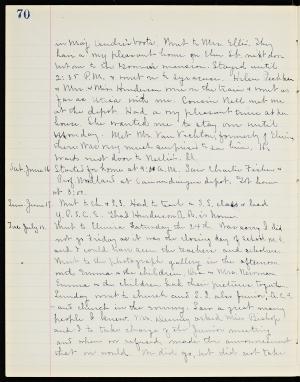 70
in Maj. Andre's boots. Went to Mrs. Ellis. They
have a very pleasant home on Elm St. next door
but one to the mansion. Stayed until
2:35 P.M. & went on to Syracuse. Helen Peckham
& Mr. & Mrs. Henderson were on the train & went as
far as Utica with me. Cousin Nell met me
at the depot. Had a very pleasant time at her
house. She wanted me to stay over until
Monday. Met Mr. Van Vechten, formerly of Elmira
there. Was very much surprised to see him. He
boards next door to Nell's.
Sat. June 16. Started for home at 9: A.M. Saw Charlie Fisher &
Prof. Woodland at Canandaigua depot. Got home
at 3:00.
Sun. June 17. Went to Ch. & S.S. Had to teach a S.S. class & lead
Y.P.S.C.E. Thad Henderson is home.
Tue. July 10. Went to Elmira Saturday the 24th. Was sorry I did
not go Friday as it was the closing day of School No. 2
and I could have seen the teachers and scholars.
Went to the photograph gallery in the afternoon
with Emma & the children. Mrs. Newman
Emma & the children had their pictures together.
Sunday went to church and S.S. also Junior C.E.
and church in the evening. Saw a great many
people I knew. Mr. asked Miss Bishop
and I to take charge of the Junior meeting
and when we refused made the announcement
that we would. We did go, but did not take